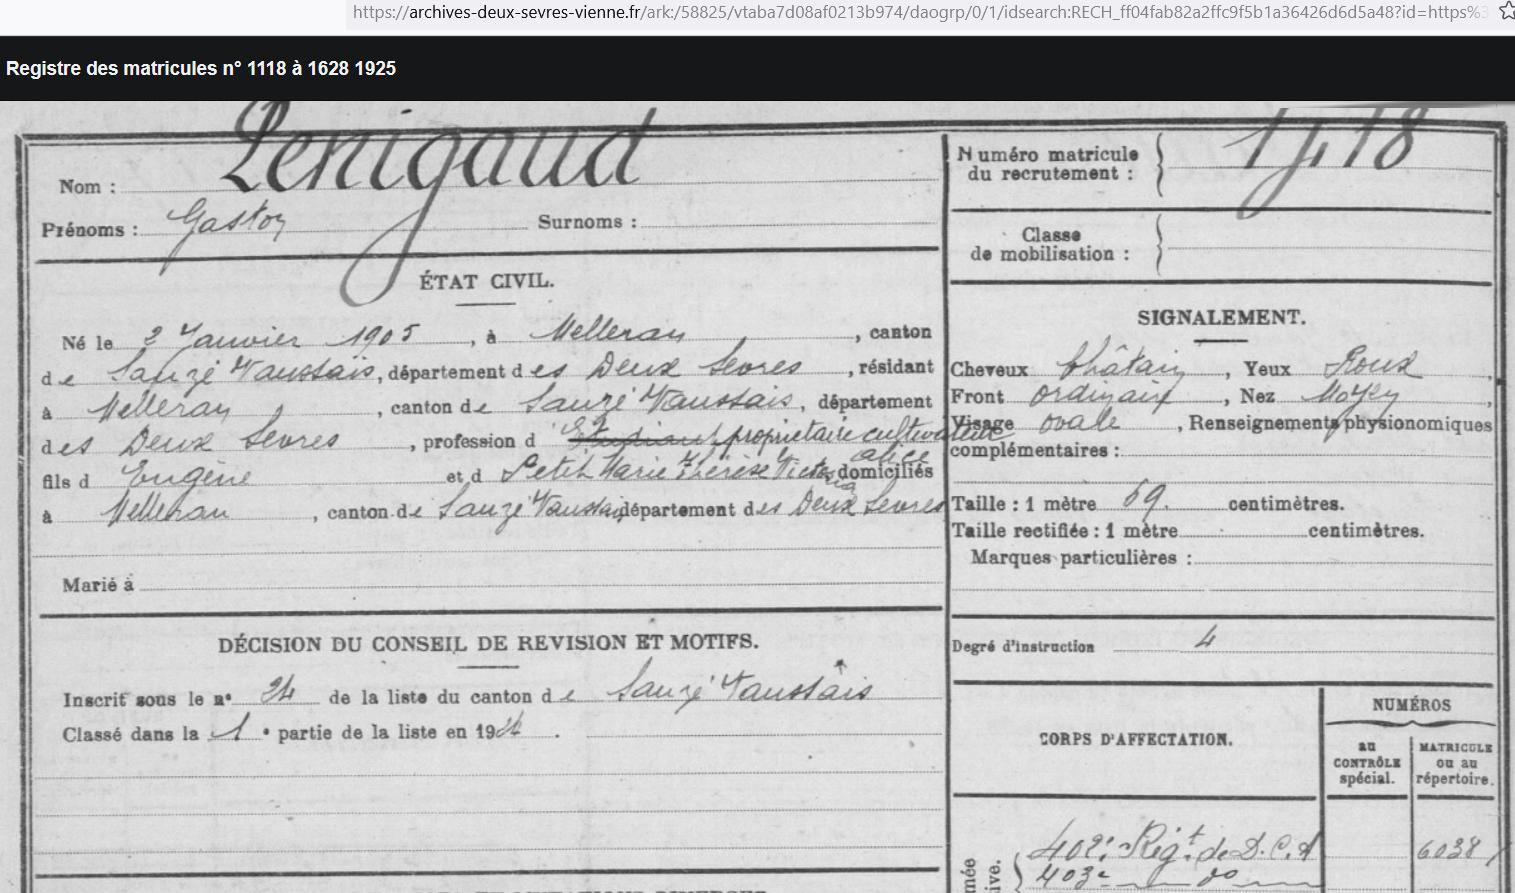 https://archives-deux-sevres-vienne.fr/ark:/58825/vtaba7d08af0213b974/daogrp/0/1/idsearch:RECH_ff04fab82a2ffc9f5b1a36426d6d5a48?id=https%3
Registre des matricules n° 1118 à 1628 1925
Nom : Penigaud
Prénoms : Gaston Surnoms :
ÉTAT CIVIL.
Né le 2 Janvier 1905, à Melleran, canton
de Sauzé Vaussais, département des Deux Sevres, résidant
à Melleran, canton de Sauzé Vaussais, département
des Deux Sevres, profession d Etudiant propriétaire cultivateur
fils d Eugène et d Petit Marie Thérèse Victoria Alice domiciliés
à Melleran, canton de Sauzé Vaussais département des Deux Sevres
Marié à
DÉCISION DU CONSEIL DE REVISION ET MOTIFS.
Inscrit sous le n° 24 de la liste du canton de Sauzé Vaussais
Classé dans la 1e partie de la liste en 19
Numéro matricule
du recrutement : 1418
Classe
de mobilisation :
SIGNALEMENT.
Cheveux châtain, Yeux Roux,
Front ordinaire, Nez Moyen,
Visage ovale, Renseignements physionomiques
complémentaires :
Taille : 1 mètre 69. centimètres.
Taille rectifiée : 1 mètre centimètres.
Marques particulières :
Degré d'instruction 4
CORPS D'AFFECTATION.
NUMÉROS
au
CONTRÔLE
spécial.
MATRICULE
ou au
répertoire.
402e Régt de D.C.A 6038
403e do